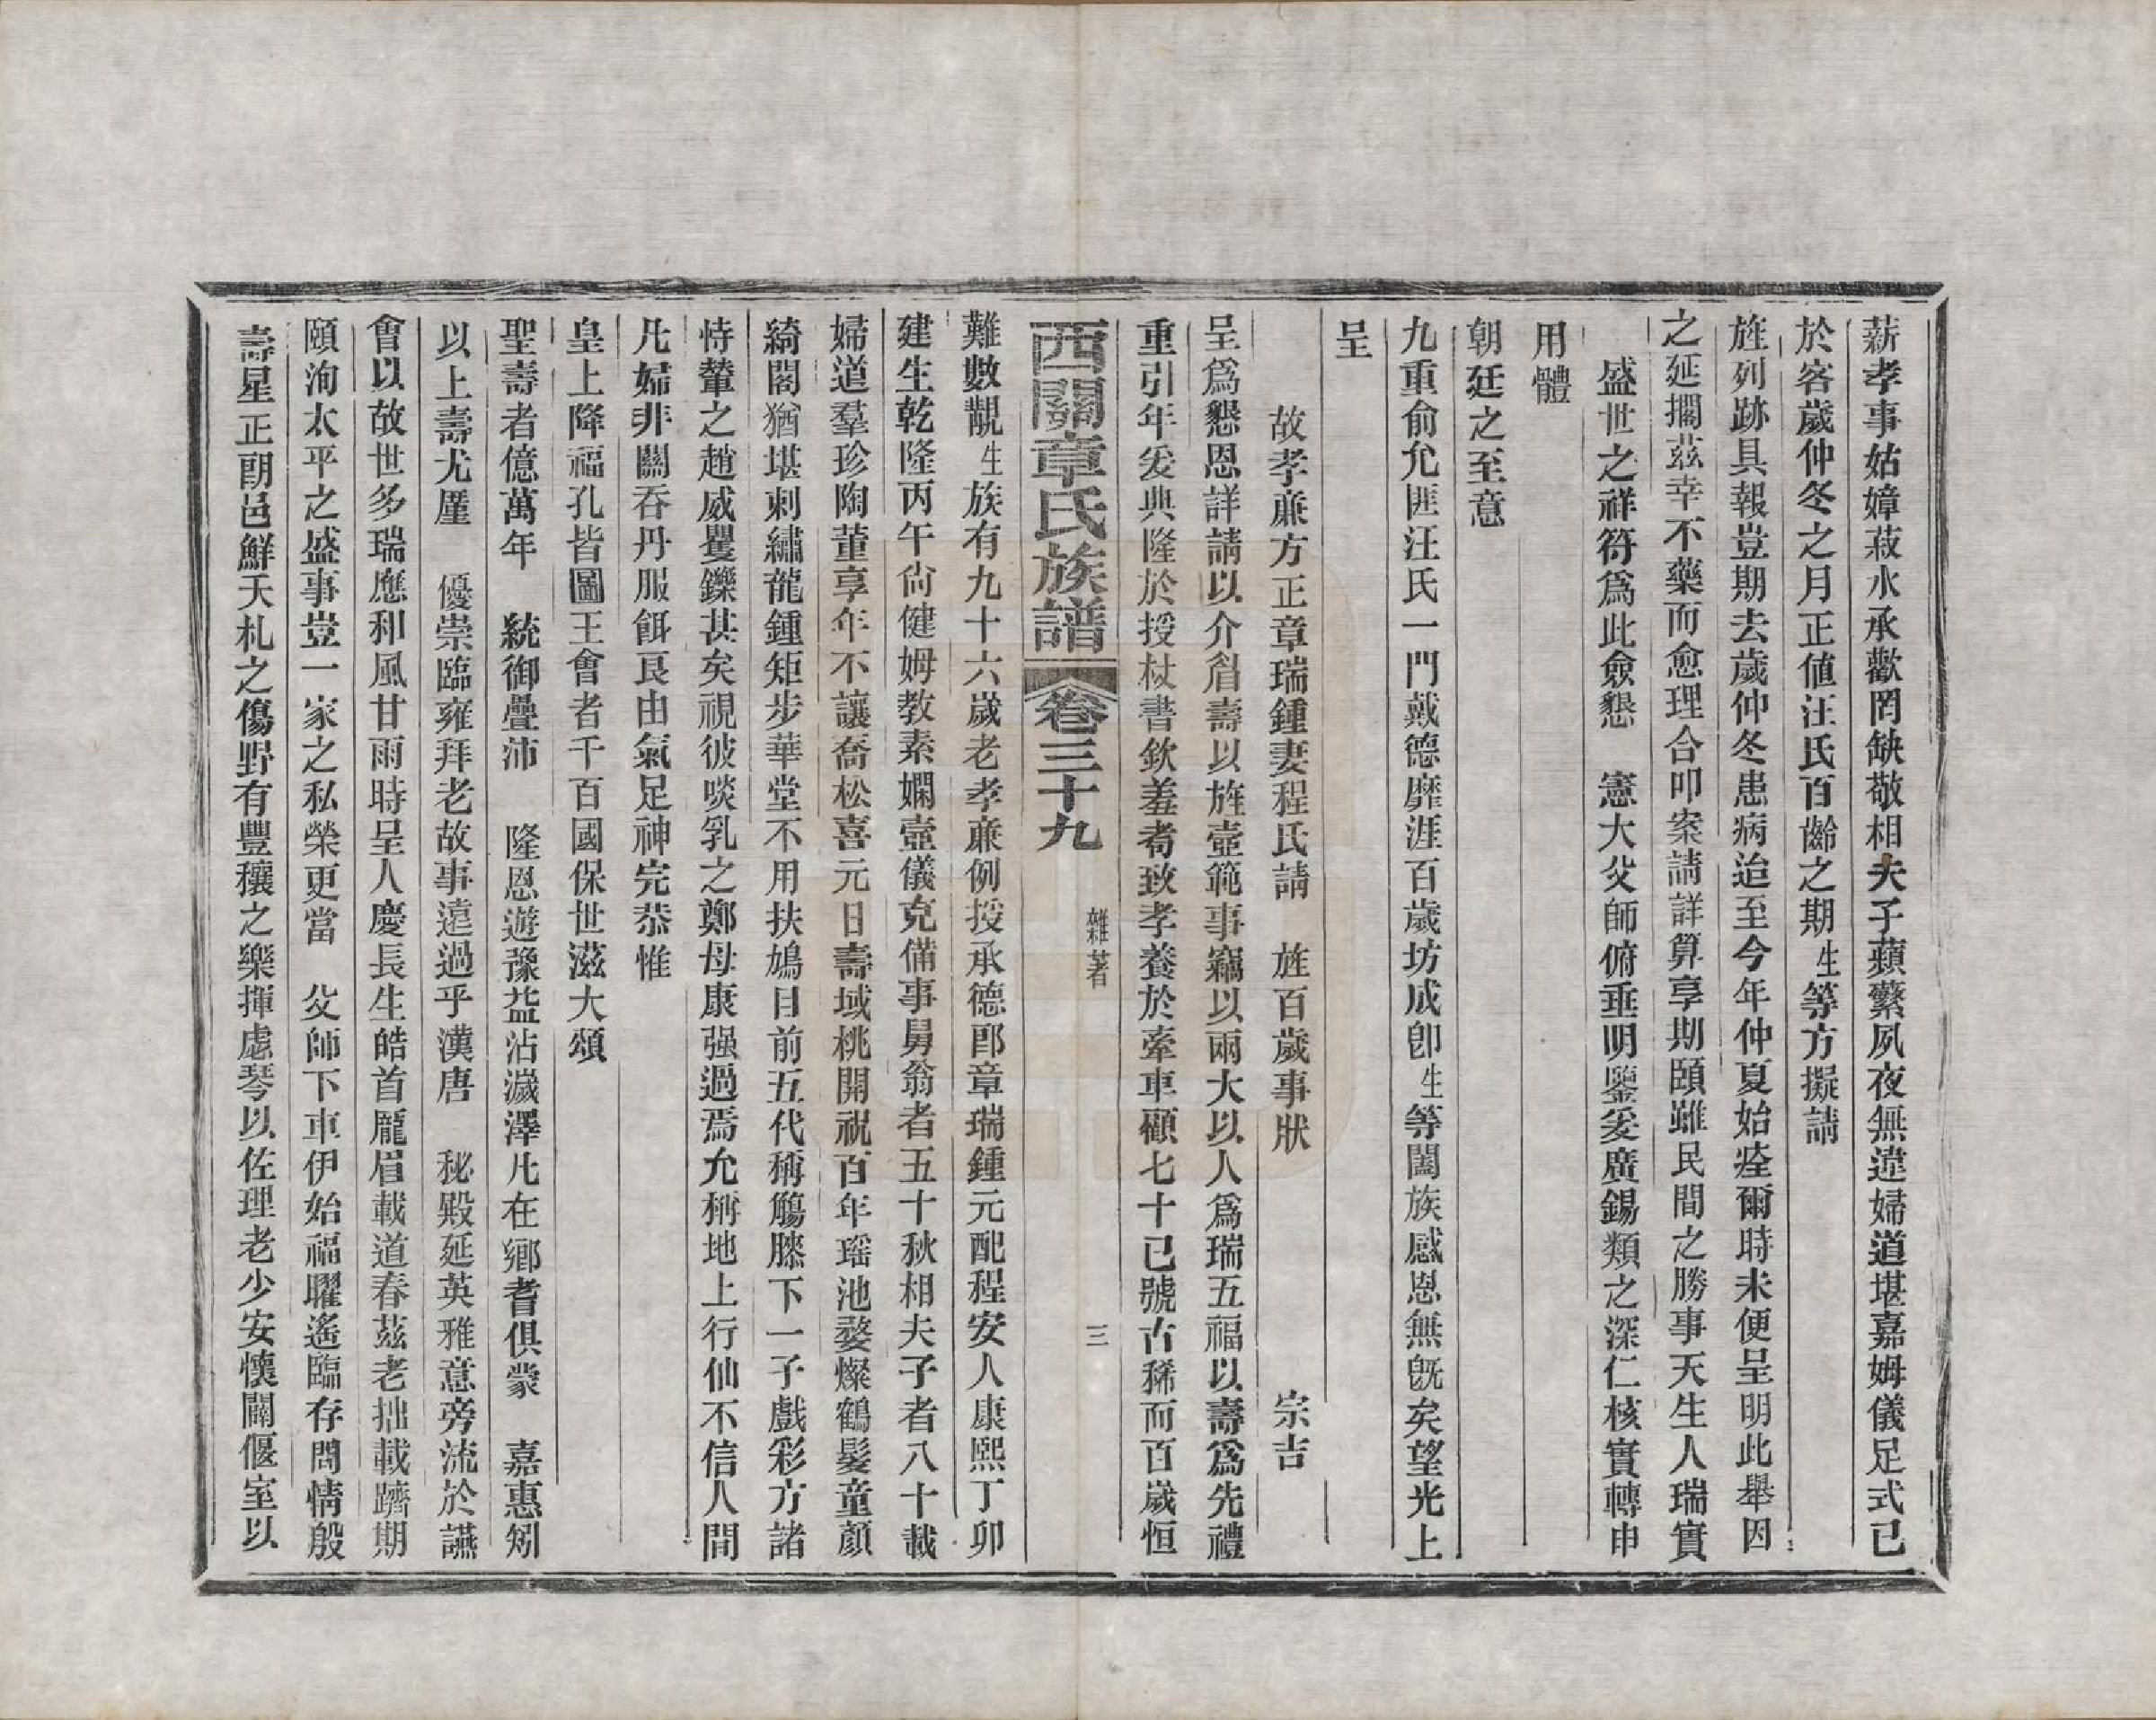 薪孝事姑嫜菽水承歡罔缺敬相夫子蘋蘩夙夜無違婦道堪嘉姆儀足式已
於客歲仲冬之月正值汪氏百齡之期生等方擬請
旌列跡具報豈期去歲仲冬患病迨至今年仲夏始痊爾時未便呈明此舉因
之延擱茲幸不藥而愈理合叩案請詳算享期頤雖民間之勝事天生人瑞實
盛世之祥符為此僉懇　憲大父師俯垂明鑒爰廣錫類之深仁核實轉申
用體
朝廷之至意
九重俞允匪汪氏一門戴德靡涯百歲坊成卽生等闔族感恩無旣矣望光上
呈
故孝廉方正章瑞鍾妻程氏請　旌百歲事狀　宗吉
呈為懇恩詳請以介眉壽以旌壼範事竊以兩大以人為瑞五福以壽為先禮
重引年爰典隆於授杖書欽羞耇致孝養於牽車顧七十已號古稀而百歲恒
西關章氏族譜　卷三十九　雜著　三
難數覯生族有九十六歲老孝廉例授承德郎章瑞鍾元配程安人康熙丁卯
建生乾隆丙午尙健姆教素嫻壼儀克備事舅翁者五十秋相夫子者八十載
婦道羣珍陶董享年不讓喬松喜元日壽域桃開祝百年瑶池婺燦鶴髮童顏
綺閣猶堪刺繡龍鍾矩步華堂不用扶鳩目前五代稱觴膝下一子戲彩方諸
恃輦之趙威矍鑠甚矣視彼啖乳之鄭母康强過焉允稱地上行仙不信人間
凡婦非關吞丹服餌良由氣足神完恭惟
皇上降福孔皆圖王會者千百國保世滋大頌
聖壽者億萬年　統御疊沛　隆恩遊豫益沾濊澤凡在鄉耆俱蒙　嘉惠矧
以上壽尤厪　優崇臨雍拜老故事遠過乎漢唐　秘殿延英雅意旁流於讌
會以故世多瑞應和風甘雨時呈人慶長生皓首龐眉載道春茲老拙載躋期
頤洵太平之盛事豈一家之私榮更當　父師下車伊始福曜遙臨存問情殷
壽星正朗邑鮮夭札之傷野有豐穰之樂揮慮琴以佐理老少安懷闢偃室以